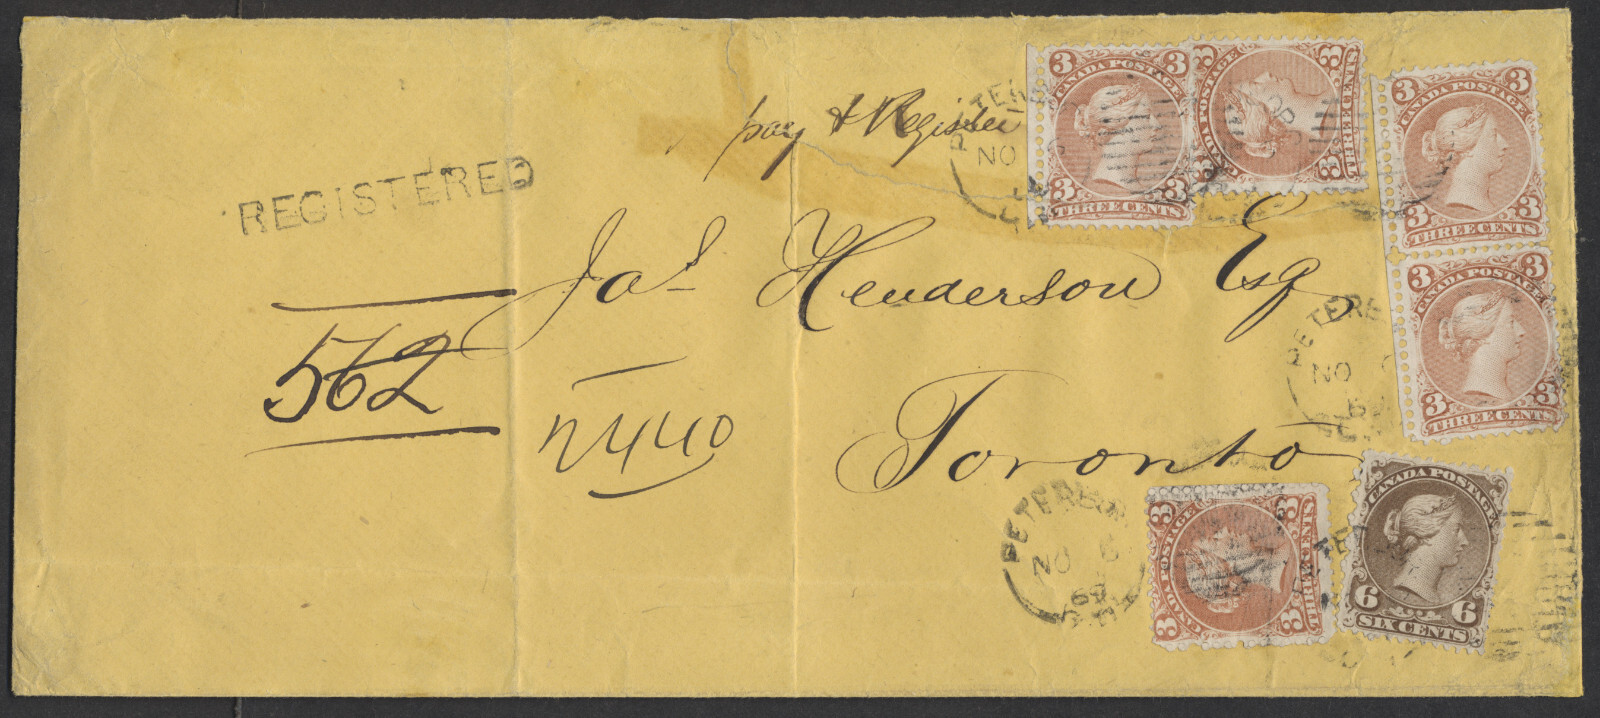 pay & Register
REGISTERED
Jas Henderson Esq
562
Toronto
2440
3 CANADA POSTAGE 3
3 THREE CENTS 3
3 CANADA POSTAGE 3
3 THREE CENTS 3
3 CANADA POSTAGE 3
3 THREE CENTS 3
3 CANADA POSTAGE 3
3 THREE CENTS 3
3 CANADA POSTAGE 3
3 THREE CENTS 3
CANADA POSTAGE
6 6
SIX CENTS
PETERBORO
NO 6
69
PETER
NO
PETERB
NO
69